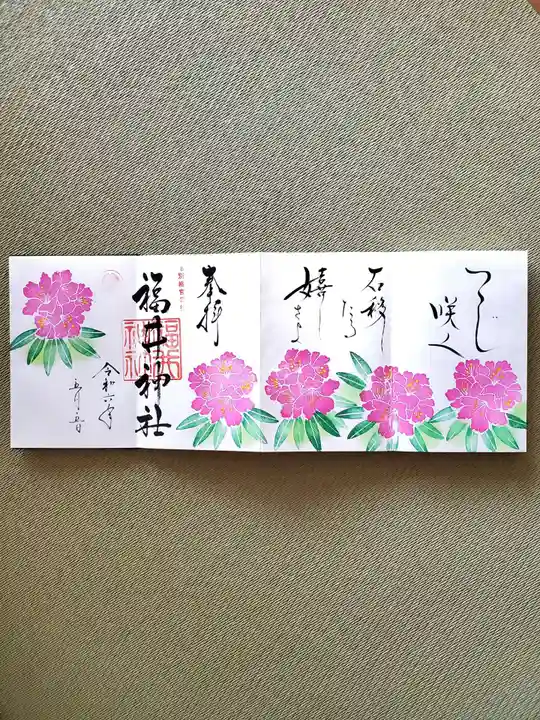 つゝじ
咲く
石移し
たる
嬉しさよ
奉拝
福井神社
令和六年
五月